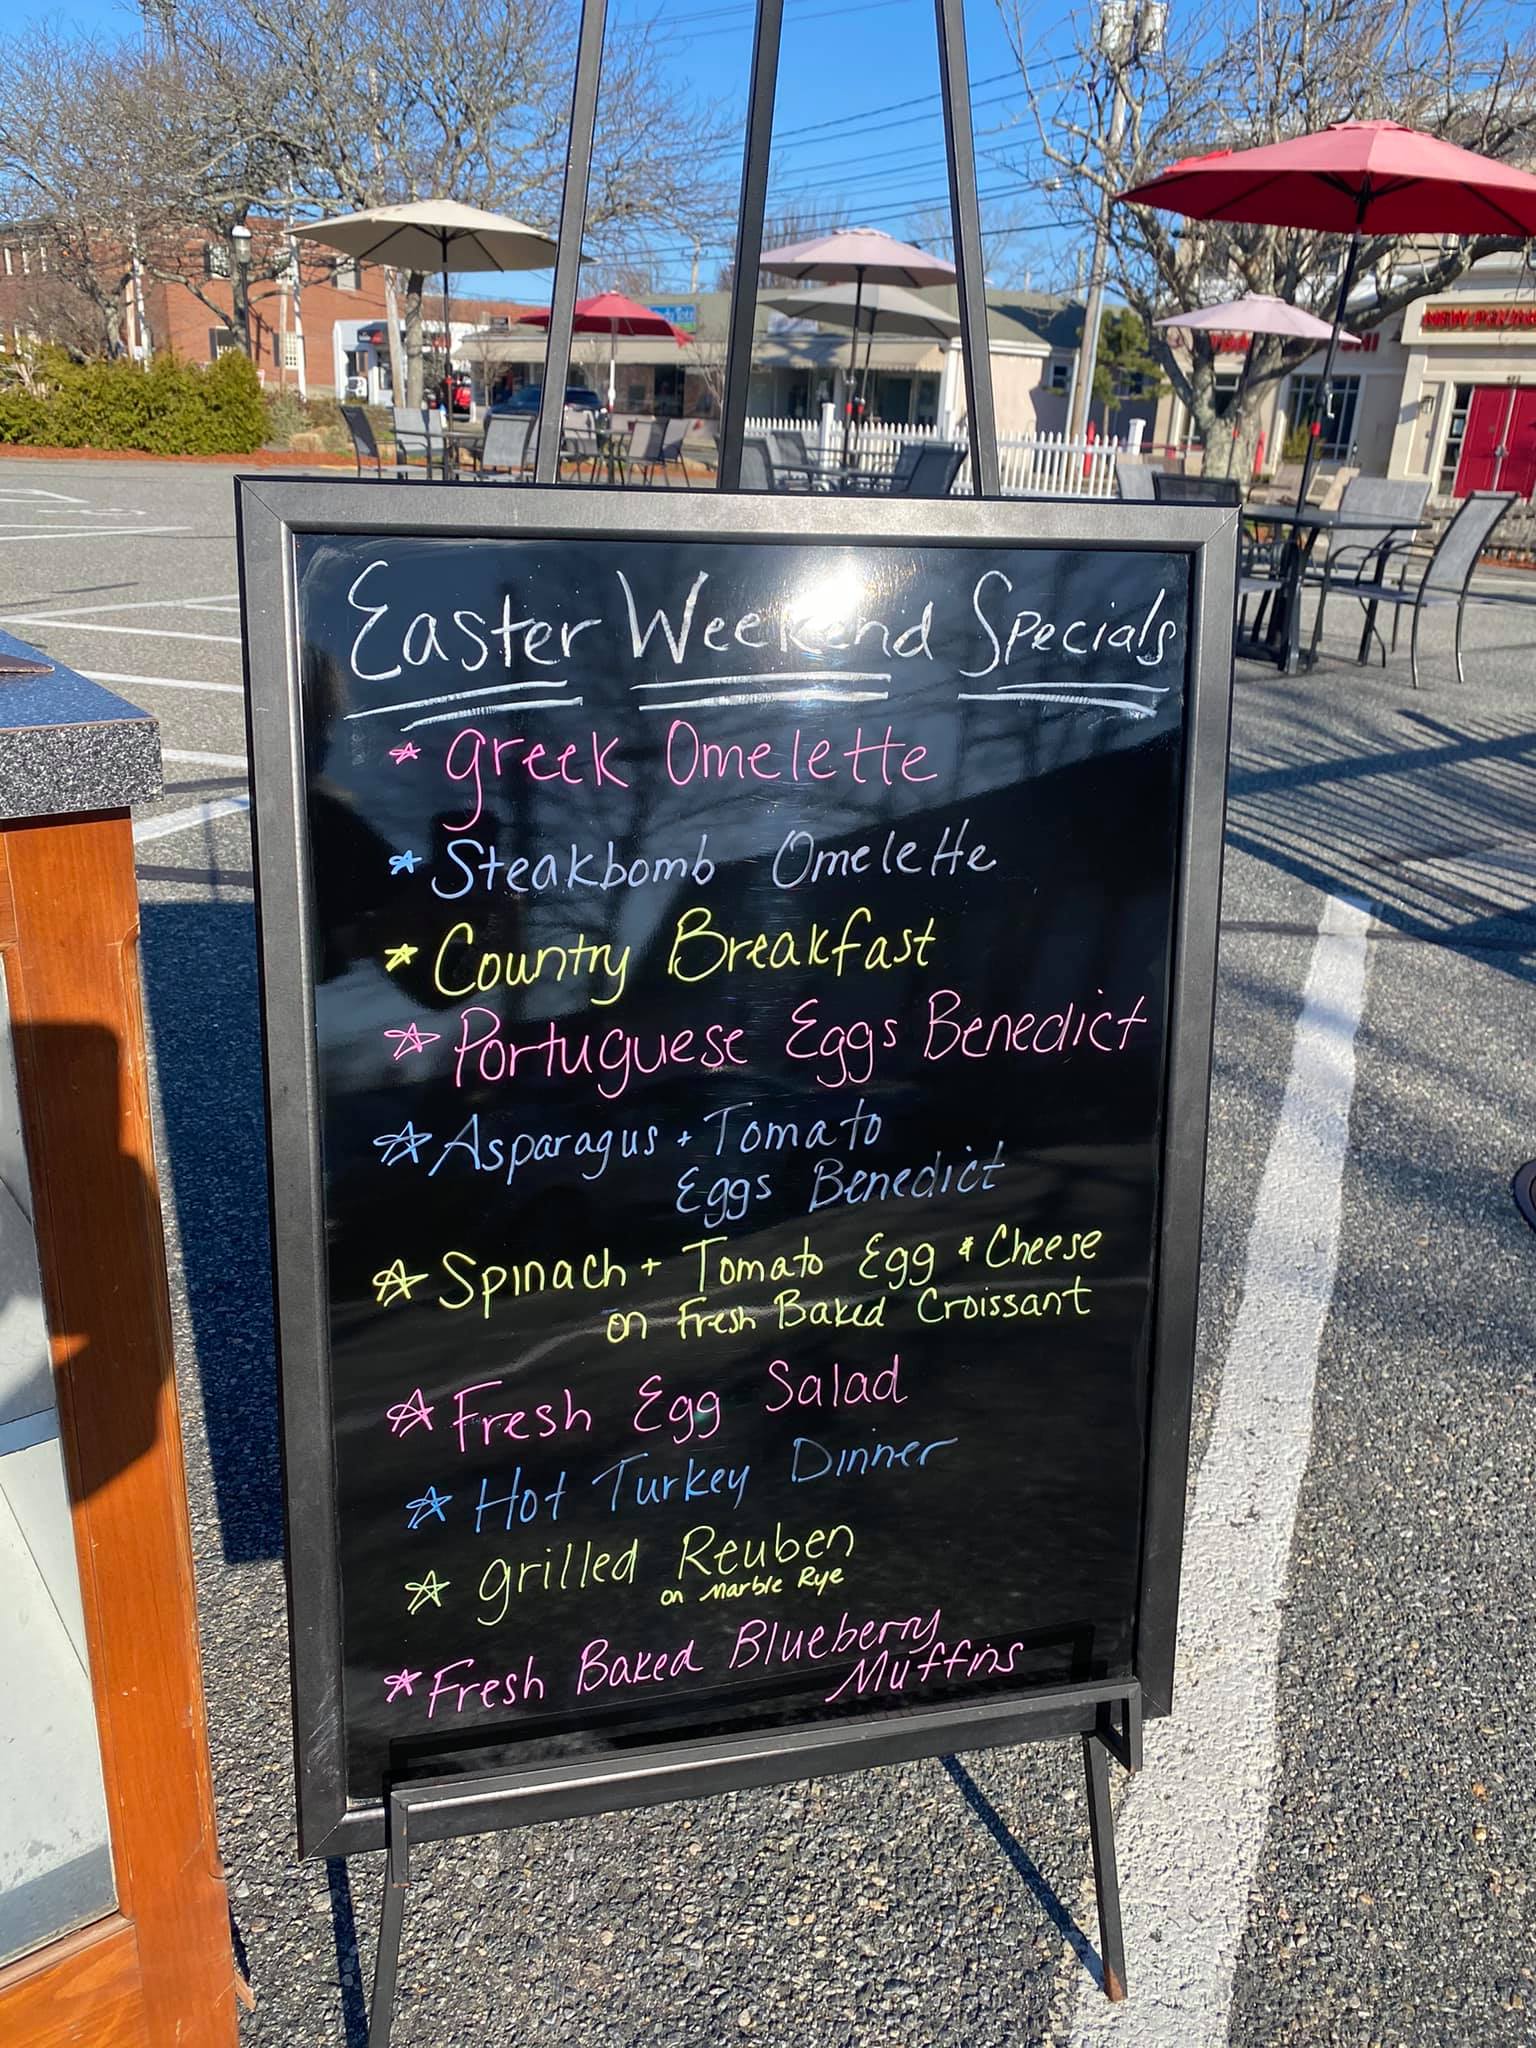 Easter Weekend Specials
Greek Omelette
Steakbomb Omelette
Country Breakfast
Portuguese Eggs Benedict
Asparagus + Tomato
Eggs Benedict
Spinach + Tomato Egg & Cheese
on Fresh Baked Croissant
Fresh Egg Salad
Hot Turkey Dinner
Grilled Reuben
on Marble Rye
Fresh Baked Blueberry
Muffins